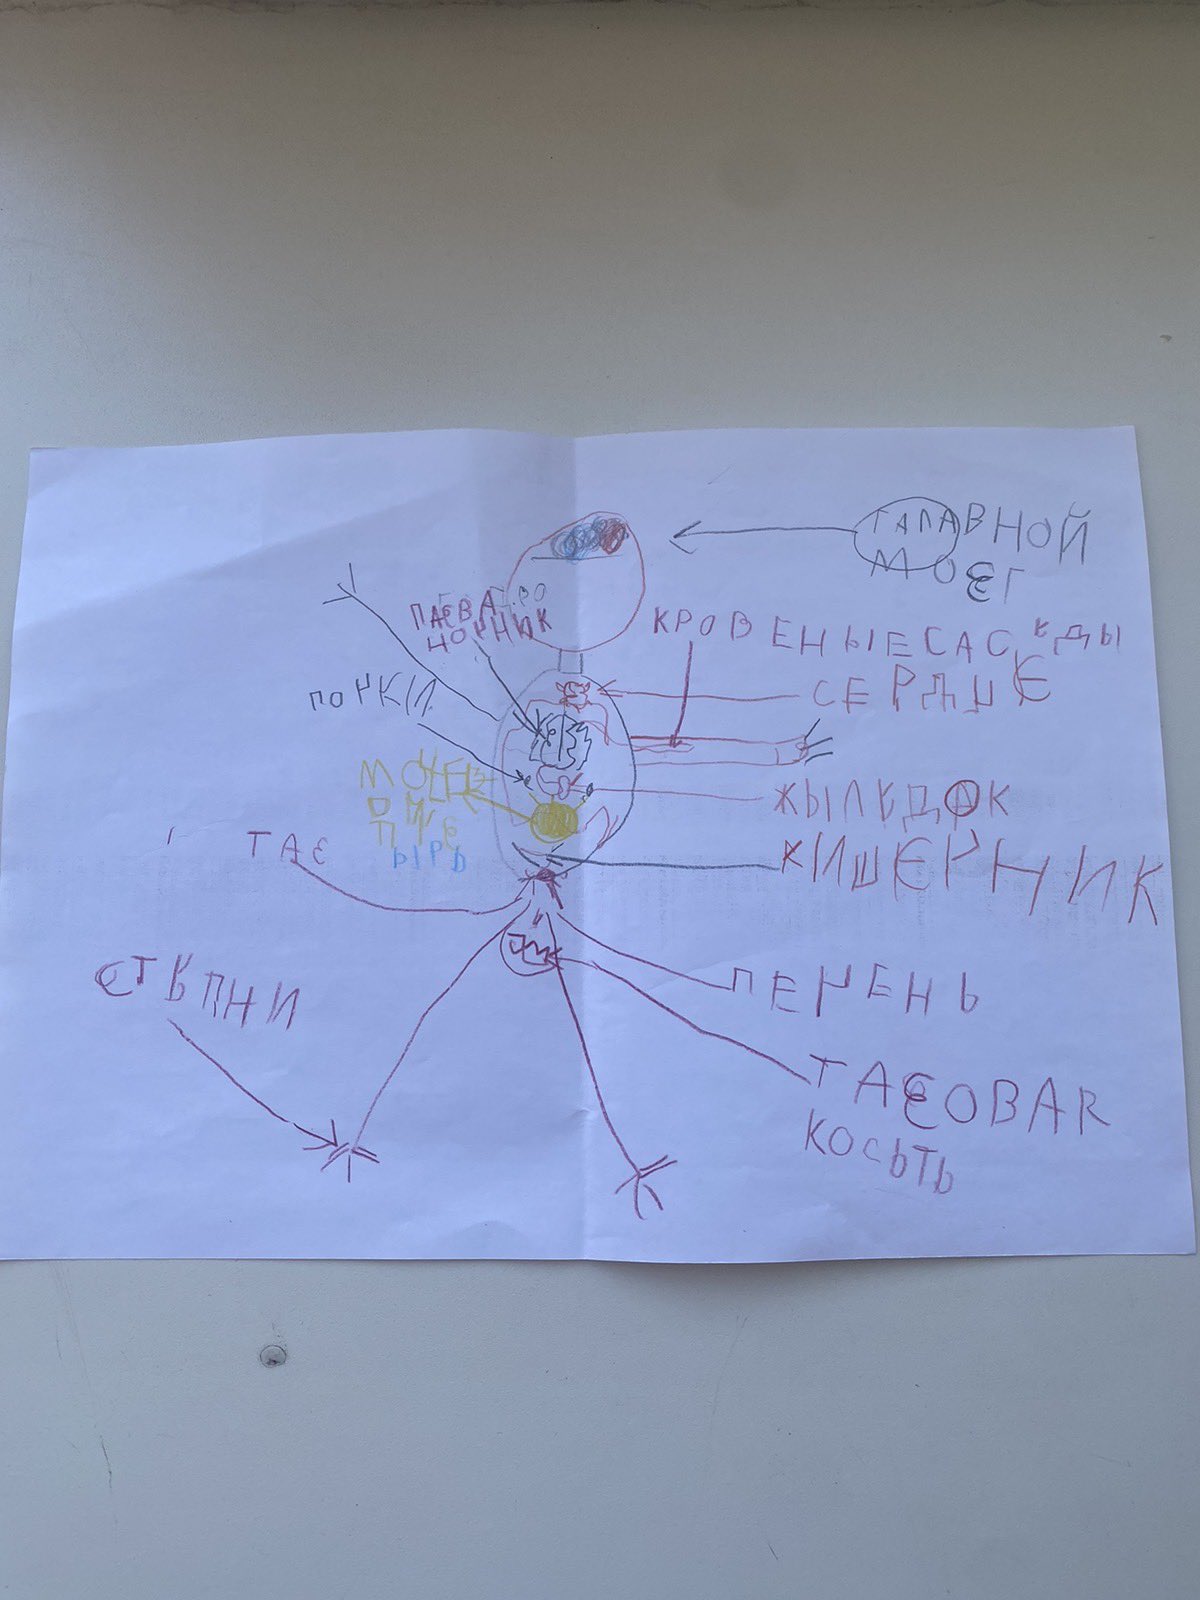 ГАЛАВНОЙ
МОЗГ
НОЧНИК
КРОВЕНЫЕ САСКДЫ
СЕРДЦЕ
ПОЧКИ
МОЧЕ
ПУЗ
ЫРЬ
ЖЫЛКДОК
КИШЕРНИК
ТАЗ
СТВПНИ
ПЕЧЕНЬ
ТАЗОВАЯ
КОСЬТЬ